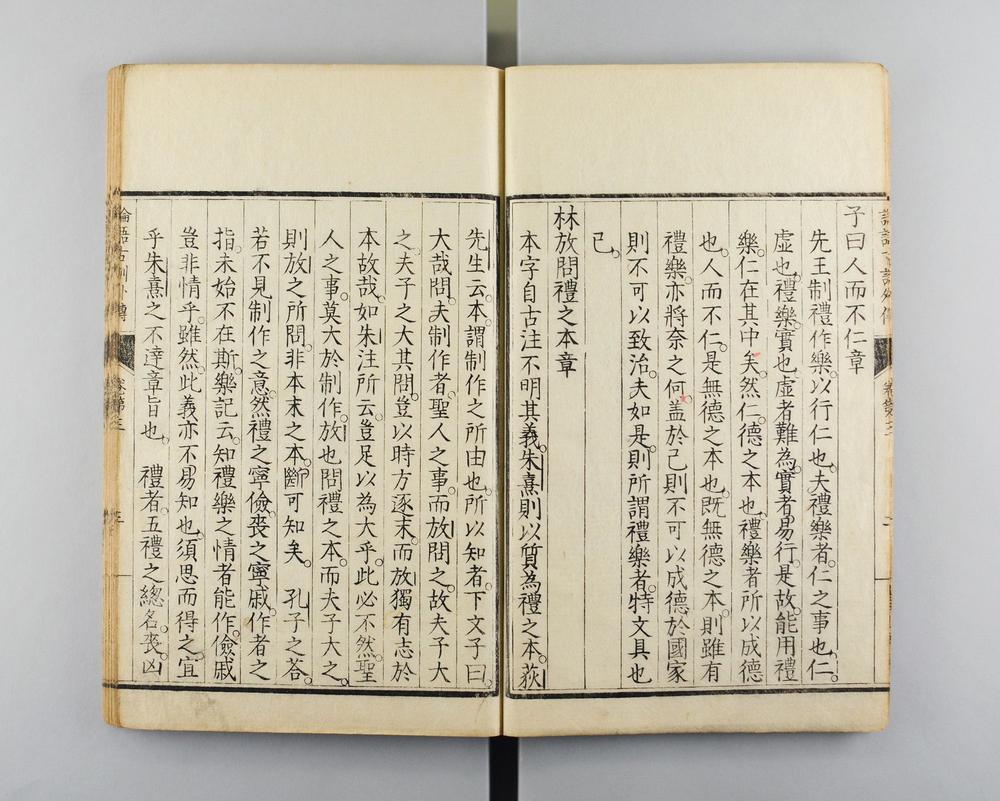 子曰人而不仁章
先王制禮作樂。以行仁也。夫禮樂者。仁之事也。仁。
虛也。禮樂。實也。虛者難為。實者易行。是故。能用禮
樂。仁在其中矣。然仁。德之本也。禮樂者所以成德
也。人而不仁。是無德之本也。既無德之本。則雖有
禮樂。亦將奈之何。盖於己則不可以成德。於國家
則不可以致治。夫如是。則所謂禮樂者。特文具也
已。
林放問禮之本章
本字自古注不明其義。朱熹則以質為禮之本。荻
先生云。本。謂制作之所由也。所以知者。下文子曰。
大哉問。夫制作者。聖人之事。而放問之。故夫子大
之。夫子之大其問。豈以時方逐末。而放獨有志於
本故哉。如朱注所云。豈足以為大乎。此必不然。聖
人之事。莫大於制作。放也問禮之本。而夫子大之。
則放之所問。非本末之本。斷可知矣。　孔子之答。
若不見制作之意。然禮之寧儉。喪之寧戚。作者之
指。未始不在斯。樂記云。知禮樂之情者能作。儉戚
豈非情乎。雖然。此義亦不易知也。須思而得之。宜
乎朱熹之不達章旨也。　禮者。五禮之總名。喪。凶